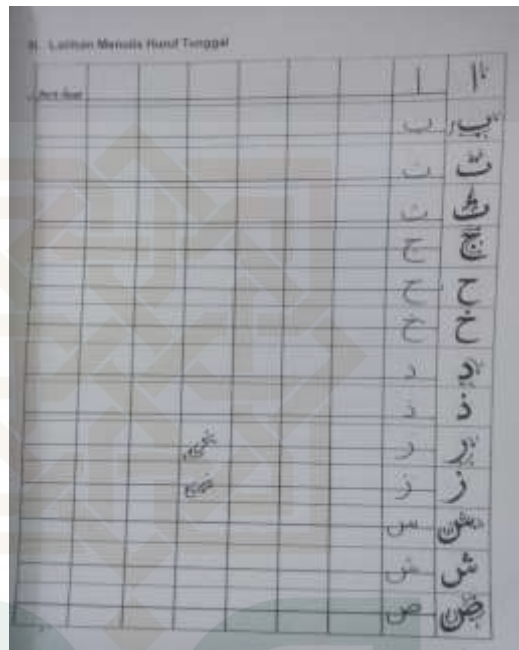 Latihan Menulis Huruf Tunggal
ا ا
ب ب
ت ت
ث ث
ج ج
ح ح
خ خ
د د
ذ ذ
ر ر
ز ز
س س
ش ش
ص ص